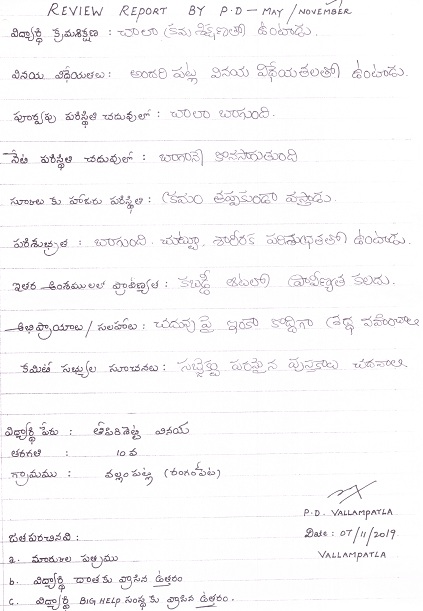 REVIEW REPORT BY P.D - MAY / NOVEMBER
విద్యార్థి క్రమశిక్షణ : చాలా క్రమశిక్షణతో ఉంటాడు.
వినయ విధేయతలు : అందరి పట్ల వినయ విధేయతలతో ఉంటాడు.
పూర్వపు పరిస్థితి చదువులో : చాలా బాగుంది.
నేటి పరిస్థితి చదువులో : బాగానే కొనసాగుతుంది
స్కూలు కు హాజరు పరిస్థితి : క్రమం తప్పకుండా వస్తాడు.
పరిశుభ్రత : బాగుంది. చుట్టూ, శారీరక పరిశుభ్రతతో ఉంటాడు.
ఇతర అంశములలో ప్రావీణ్యత : కబడ్డీ ఆటలో ప్రావీణ్యత కలదు.
అభిప్రాయాలు / సలహాలు : చదువు పై ఇంకా కొద్దిగా శ్రద్ధ వహించాలి
కమిటీ సభ్యుల సూచనలు : సబ్జెక్టు పరమైన పుస్తకాలు చదవాలి
విద్యార్థి పేరు : వినయ
తరగతి : 10 వ
గ్రామము : వల్లంపట్ల (రంగంపేట)
P.D. VALLAMPATLA
Date : 07/11/2019
VALLAMPATLA
జతపరచినవి :
a. మార్కుల పత్రము
b. విద్యార్థి దాతకు వ్రాసిన ఉత్తరం
c. విద్యార్థి BIG HELP సంస్థ కు వ్రాసిన ఉత్తరం.